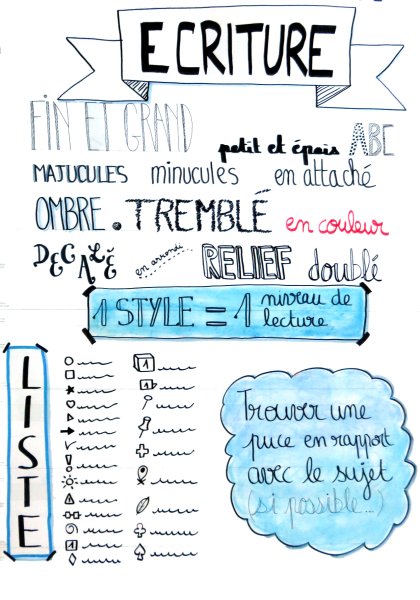 ECRITURE
FIN ET GRAND
petit et épais ABC
MAJUCULES minucules en attaché
OMBRE. TREMBLÉ en couleur
DECALÉ en arrondi RELIEF doublé
1 STYLE = 1 niveau de
lecture
LISTE
1
1
1
Trouver une
puce en rapport
avec le sujet
(si possible...)